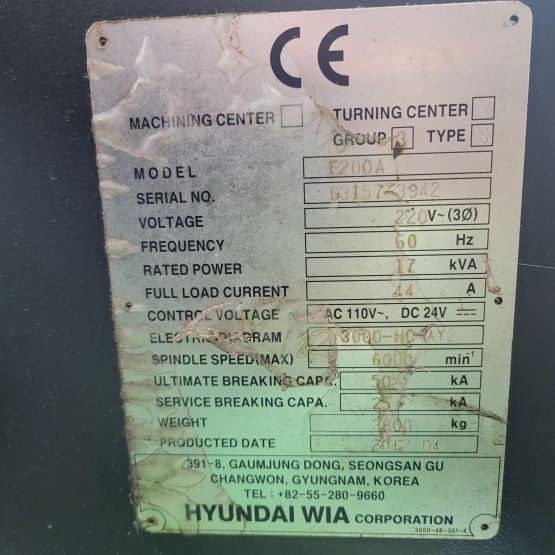 CE
MACHINING CENTER TURNING CENTER
GROUP 3 TYPE S
MODEL E200A
SERIAL NO. G3157-3942
VOLTAGE 220 V~(3Ø)
FREQUENCY 60 Hz
RATED POWER 17 kVA
FULL LOAD CURRENT 44 A
CONTROL VOLTAGE AC 110V~, DC 24V
DIAGRAM
SPINDLE SPEED(MAX) 6000 min⁻¹
ULTIMATE BREAKING CAPA. kA
SERVICE BREAKING CAPA. kA
WEIGHT 3800 kg
PRODUCTED DATE 04
391-8, GAUMJUNG DONG, SEONGSAN GU
CHANGWON, GYUNGNAM, KOREA
TEL : +82-55-280-9660
HYUNDAI WIA CORPORATION
3000-48-301-4